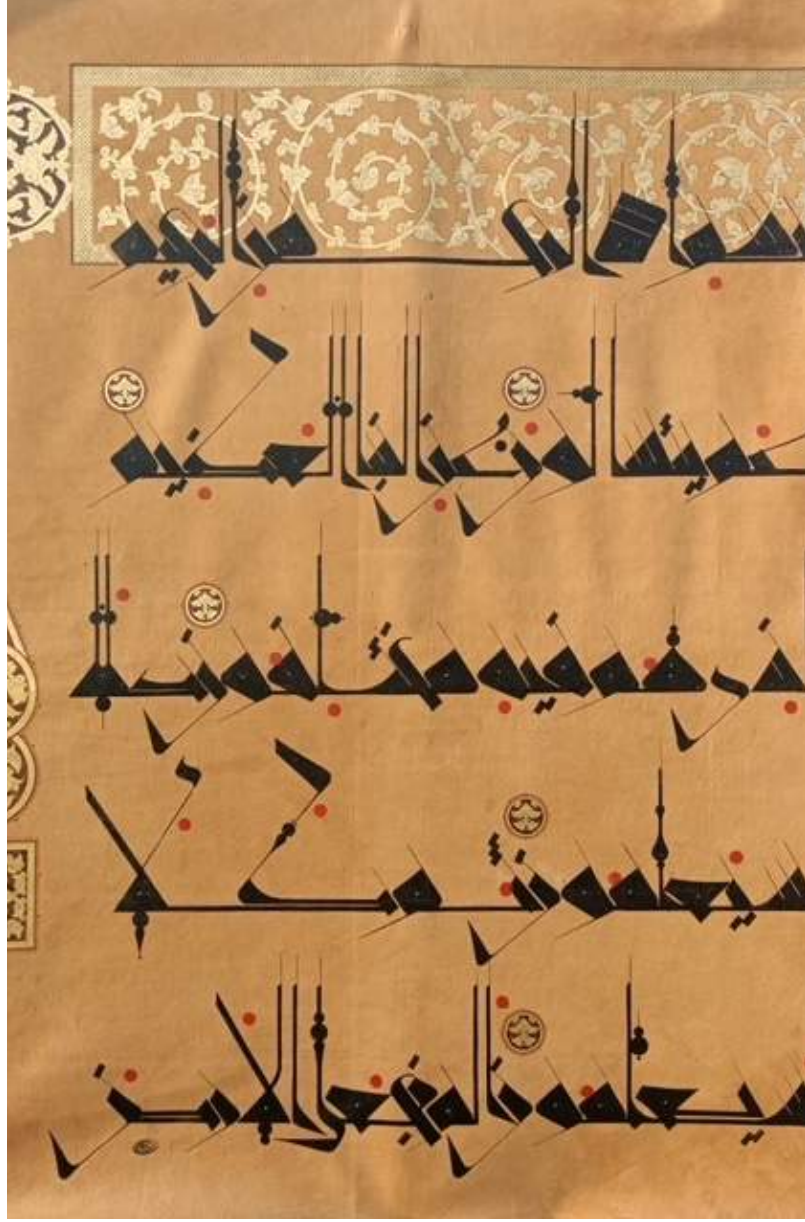 بسم الله الرحمن الرحيم
عم يتسالون عن النبا العظيم
الذي هم فيه مختلفون كلا
سيعلمون ثم كلا
سيعلمون الم نجعل الارض